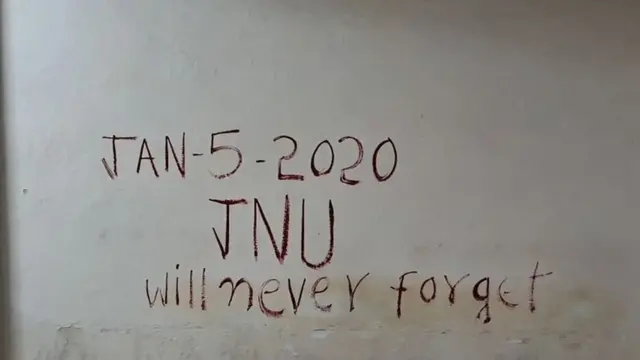 JAN-5-2020
JNU
will never forget